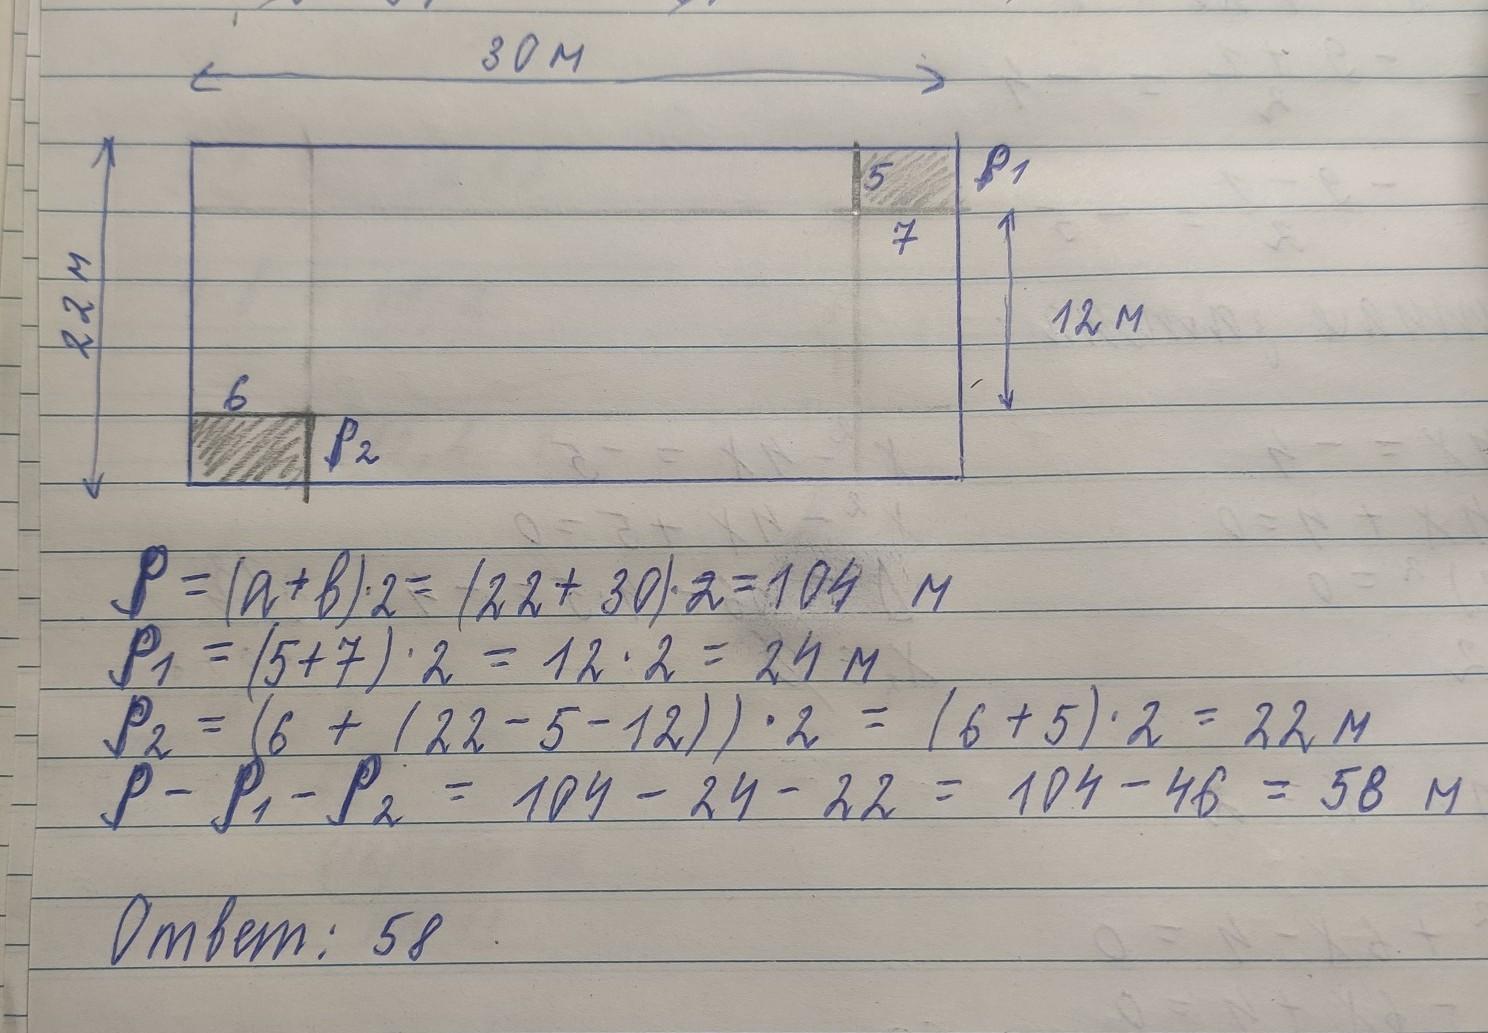 30 м
5 P1
7
22 м
12 м
6
P2
P = (a+b)·2 = (22+30)·2 = 104 м
P1 = (5+7)·2 = 12·2 = 24 м
P2 = (6 + (22-5-12))·2 = (6+5)·2 = 22 м
P - P1 - P2 = 104 - 24 - 22 = 104 - 46 = 58 м
Ответ: 58